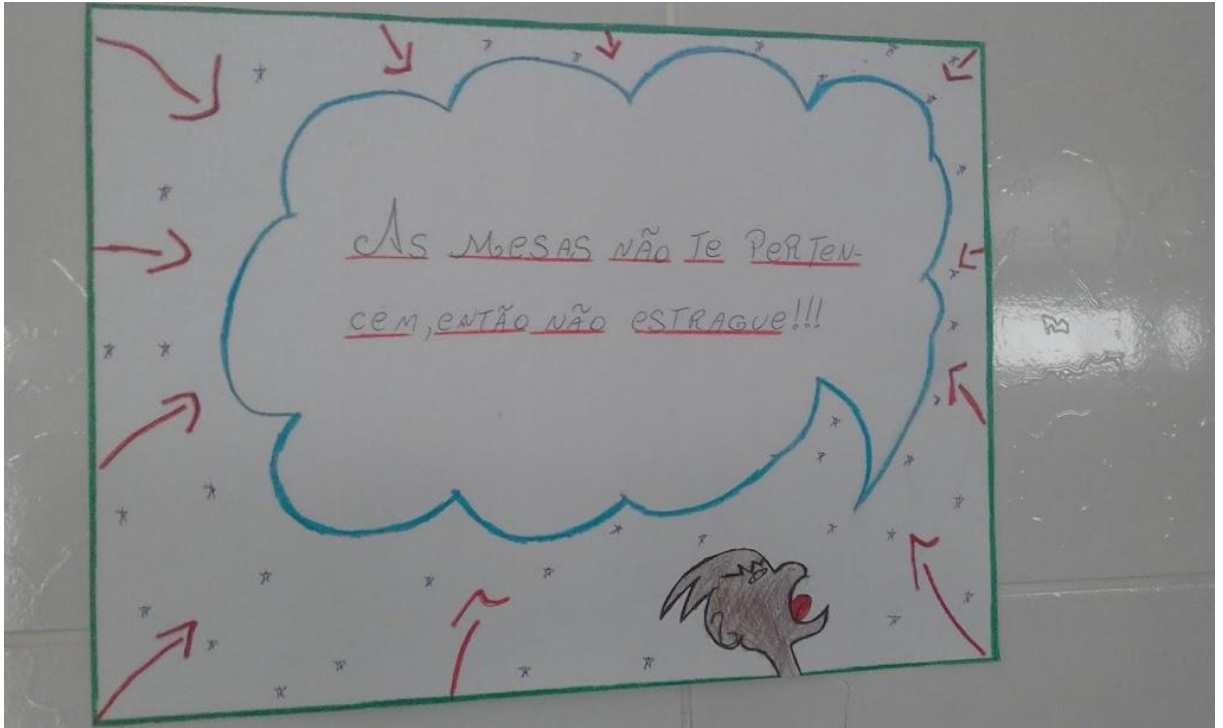 As Mesas não Te PeRTen-
cem, então não estrague!!!